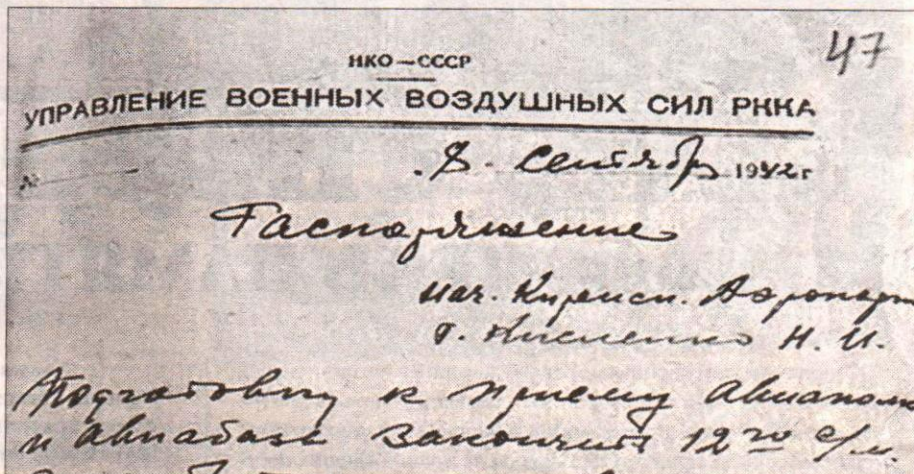 47
НКО–СССР
УПРАВЛЕНИЕ ВОЕННЫХ ВОЗДУШНЫХ СИЛ РККА
№ 8. Сентябрь 1942 г
Распоряжение
нач. Киренск. Аэропорт
т. Кисленко Н. И.
Подготовку к приему авиаполка
и авиабазы закончить 12го с/м.